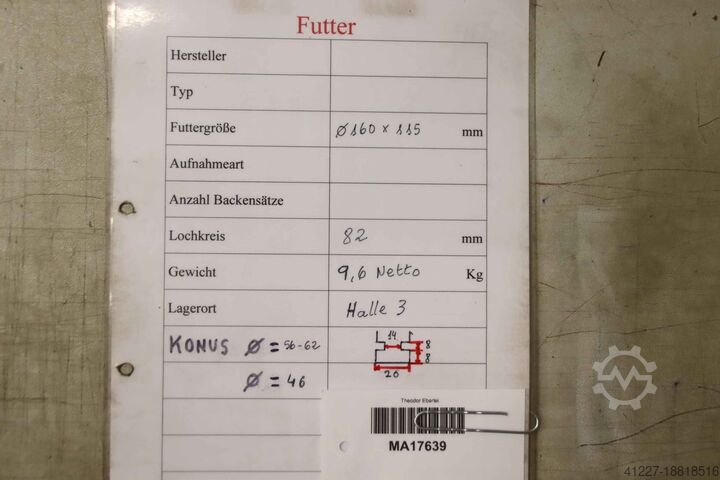 Futter
Hersteller
Typ
Futtergröße ø 160 x 115 mm
Aufnahmeart
Anzahl Backensätze
Lochkreis 82 mm
Gewicht 9,6 Netto Kg
Lagerort Halle 3
KONUS ø = 56-62
14 8
8
20
ø = 46
Theodor Ebertel
MA17639
41227-18818516